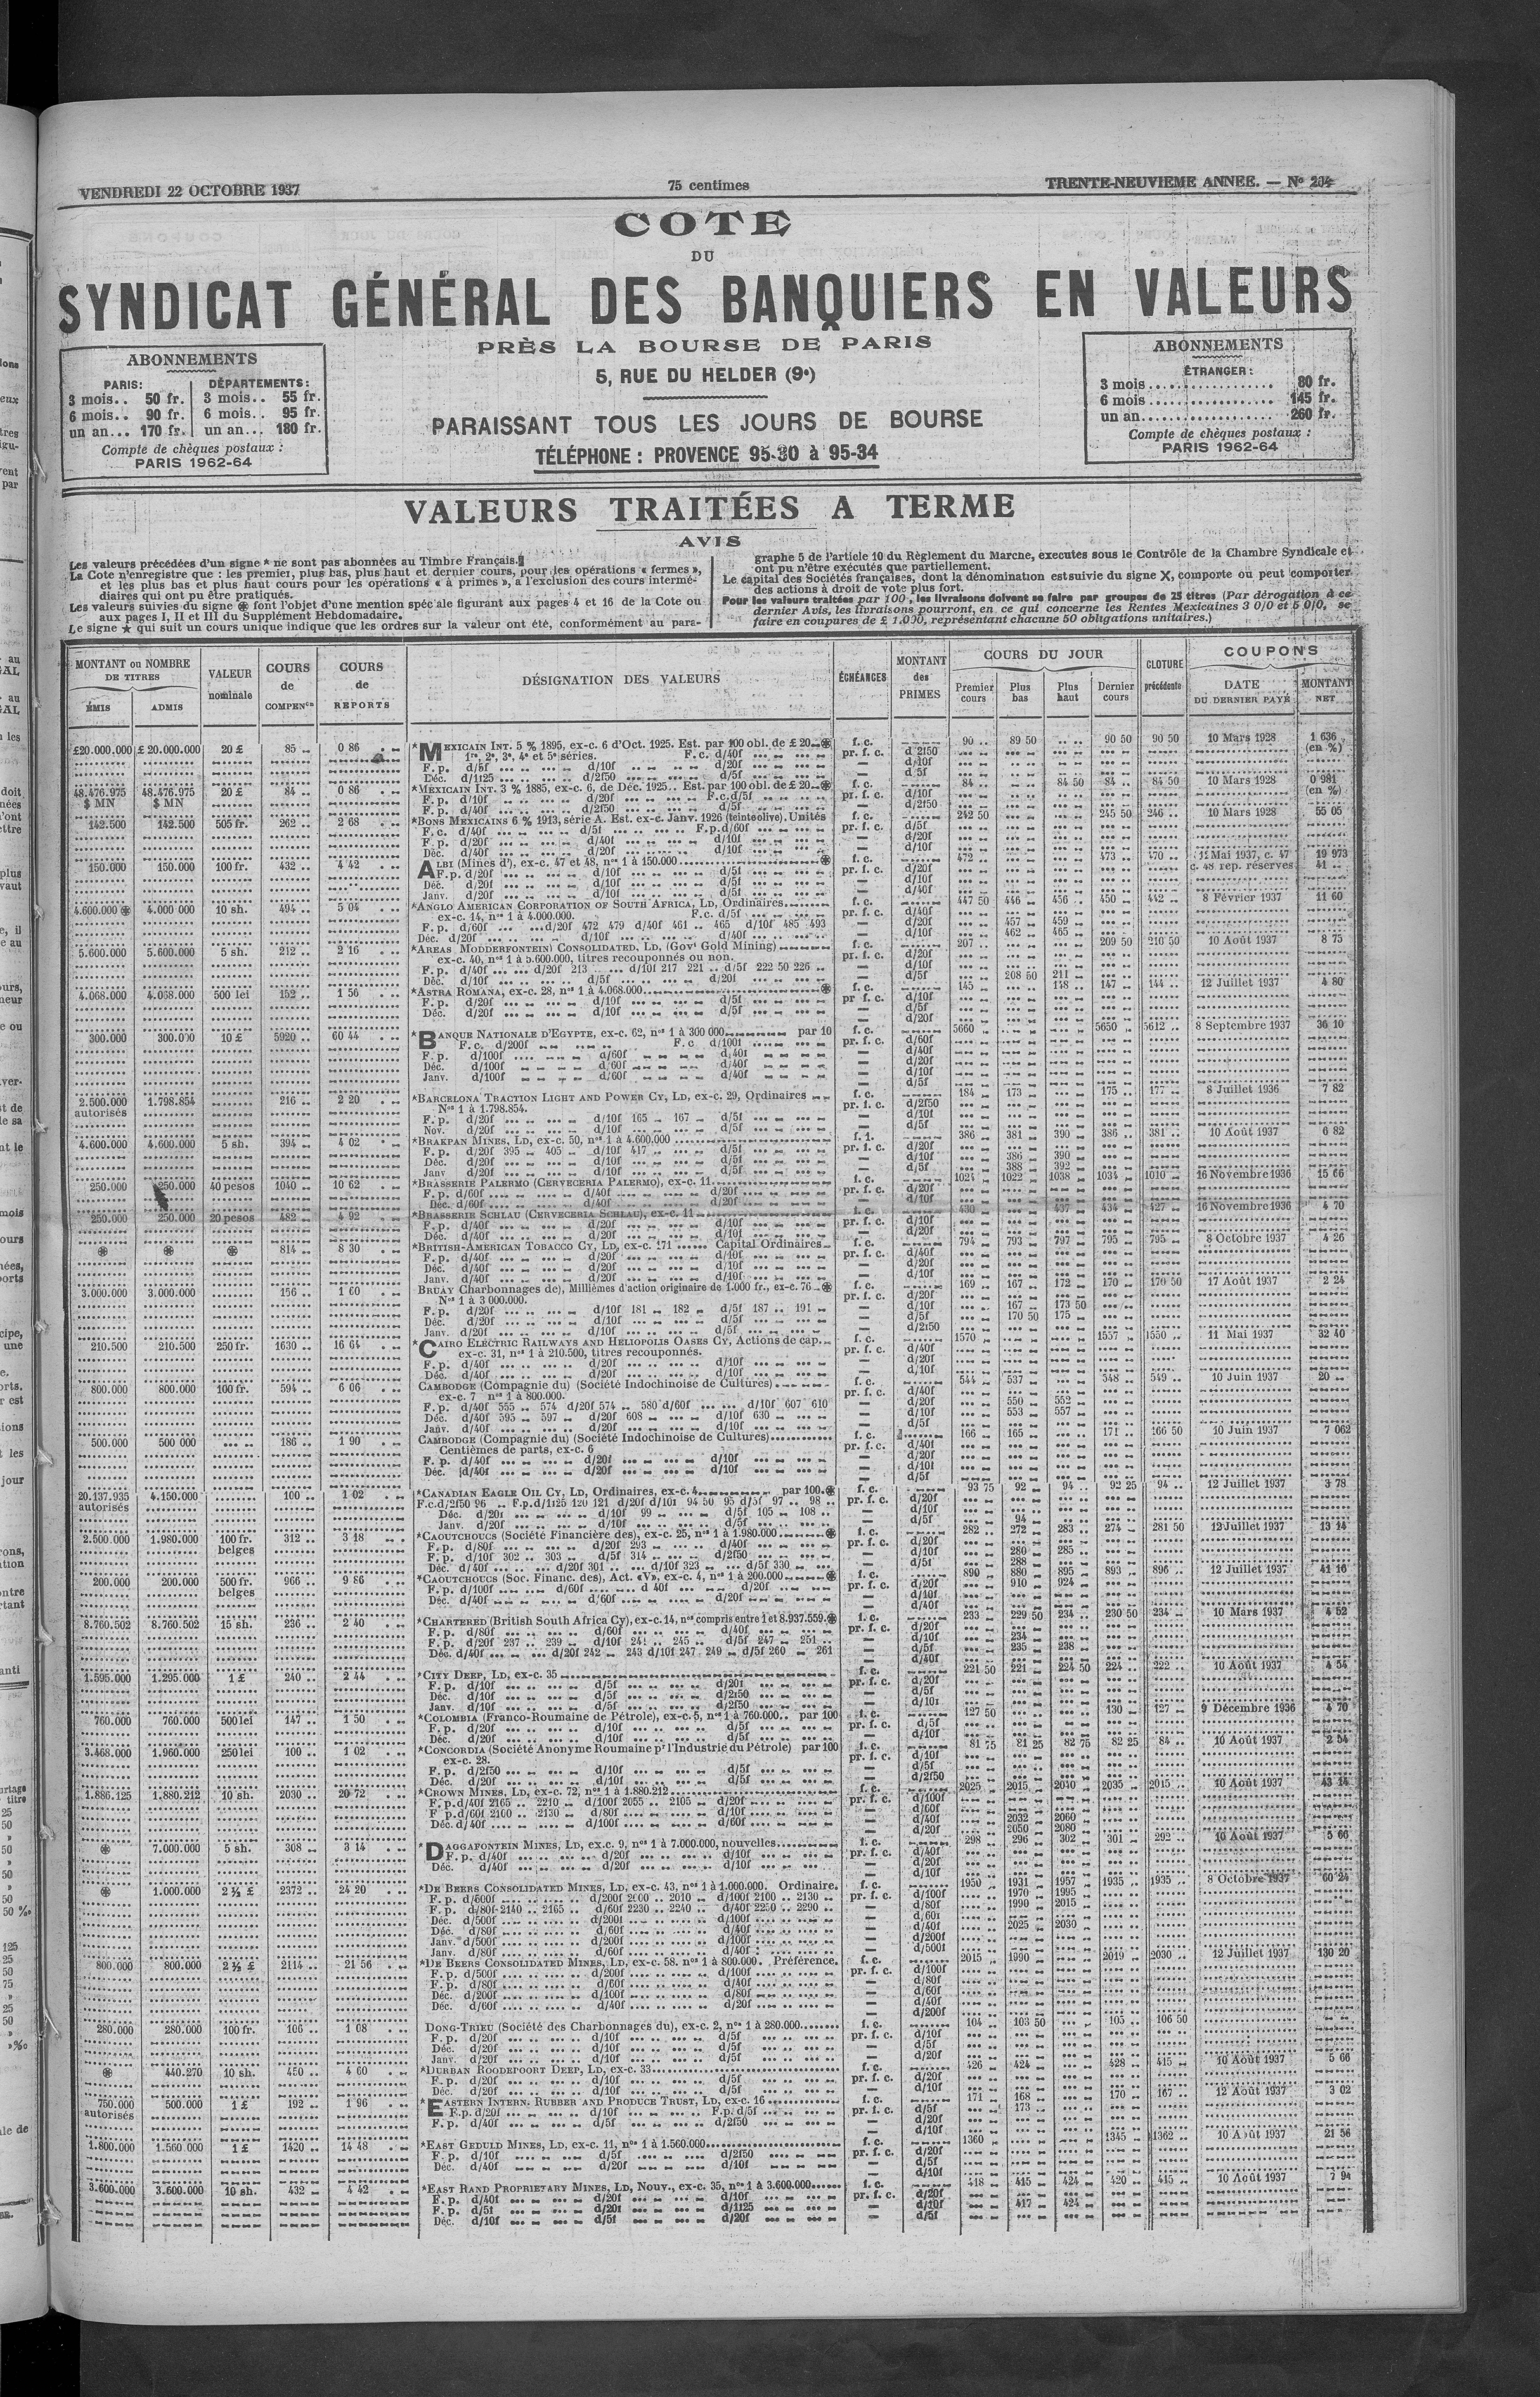 VENDREDI 22 OCTOBRE 1937
75 centimes
TRENTE-NEUVIEME ANNEE. — N° 204
COTE
DU
SYNDICAT GÉNÉRAL DES BANQUIERS EN VALEURS
PRÈS LA BOURSE DE PARIS
5, RUE DU HELDER (9e)
PARAISSANT TOUS LES JOURS DE BOURSE
TÉLÉPHONE : PROVENCE 95-30 à 95-34
ABONNEMENTS
PARIS: DÉPARTEMENTS:
3 mois.. 50 fr. 3 mois.. 55 fr.
6 mois.. 90 fr. 6 mois.. 95 fr.
un an... 170 fr. un an... 180 fr.
Compte de chèques postaux :
PARIS 1962-64
ABONNEMENTS
ÉTRANGER :
3 mois................ 80 fr.
6 mois................ 145 fr.
un an................. 260 fr.
Compte de chèques postaux :
PARIS 1962-64
VALEURS TRAITÉES A TERME
AVIS
Les valeurs précédées d'un signe * ne sont pas abonnées au Timbre Français.
La Cote n'enregistre que : les premier, plus bas, plus haut et dernier cours, pour les opérations « fermes »,
et les plus bas et plus haut cours pour les opérations « à primes », à l'exclusion des cours intermé-
diaires qui ont pu être pratiqués.
Les valeurs suivies du signe ⊛ font l'objet d'une mention spéciale figurant aux pages 4 et 16 de la Cote ou
aux pages I, II et III du Supplément Hebdomadaire.
Le signe ★ qui suit un cours unique indique que les ordres sur la valeur ont été, conformément au para-
graphe 5 de l'article 10 du Règlement du Marche, executes sous le Contrôle de la Chambre Syndicale et
ont pu n'être exécutés que partiellement.
Le capital des Sociétés françaises, dont la dénomination est suivie du signe X, comporte ou peut comporter
des actions à droit de vote plus fort.
Pour les valeurs traitées par 100, les livraisons doivent se faire par groupes de 25 titres (Par dérogation à ce
dernier Avis, les livraisons pourront, en ce qui concerne les Rentes Mexicaines 3 0/0 et 5 0/0, se
faire en coupures de £ 1.000, représentant chacune 50 obligations unitaires.)
MONTANT ou NOMBRE DE TITRES
ÉMIS ADMIS
VALEUR nominale
COURS de COMPENon
COURS de REPORTS
DÉSIGNATION DES VALEURS
ÉCHÉANCES
MONTANT des PRIMES
COURS DU JOUR
Premier cours Plus bas Plus haut Dernier cours
CLOTURE précédente
COUPONS
DATE DU DERNIER PAYÉ MONTANT NET
£20.000.000 £ 20.000.000 20 £ 85 .. 0 86 *MEXICAIN INT. 5 % 1895, ex-c. 6 d'Oct. 1925. Est. par 100 obl. de £ 20 ⊛ f. c. 90 .. 89 50 90 50 90 50 10 Mars 1928 1 636 (en %)
1re, 2e, 3e, 4e et 5e séries. F.c. d/40f pr. f. c. d 2f50
F. p. d/5f d/10f d/20f — d/10f
Déc. d/1f25 d/2f50 d/5f — d 5f
48.476.975 $ MN 48.476.975 $ MN 20 £ 84 .. 0 86 *MEXICAIN INT. 3 % 1885, ex-c. 6, de Déc. 1925.. Est. par 100 obl. de £ 20 ⊛ f. c. 84 .. 84 50 84 .. 84 50 10 Mars 1928 0 981 (en %)
F. p. d/10f d/20f F.c.d/5f pr. f. c. d/10f
F. p. d/40f d/2f50 d/5f — d/2f50
142.500 142.500 505 fr. 262 .. 2 68 *BONS MEXICAINS 6 % 1913, série A. Est. ex-c. Janv. 1926 (teinte olive). Unités f. c. 242 50 245 50 246 .. 10 Mars 1928 55 05
F. c. d/40f d/5f F.p.d/60f pr. f. c. d/5f
F. p. d/20f d/40f d/10f — d/20f
Déc. d/40f d/20f d/10f — d/10f
150.000 150.000 100 fr. 432 .. 4 42 ALBI (Mines d'), ex-c. 47 et 48, nos 1 à 150.000 ⊛ f. c. 472 .. 473 470 .. Mai 1937, c. 47 19 973
c. 48 rep. réserves 41 ..
F. p. d/20f d/10f d/5f pr. f. c. d/20f
Déc. d/20f d/10f d/5f — d/10f
Janv. d/20f d/10f d/5f — d/40f
4.600.000 ⊛ 4.000 000 10 sh. 494 .. 5 04 *ANGLO AMERICAN CORPORATION OF SOUTH AFRICA, LD, Ordinaires f. c. 447 50 446 456 450 442 8 Février 1937 11 60
ex-c. 14, nos 1 à 4.000.000. F.c. d/5f pr. f. c. d/40f
F. p. d/60f d/20f 472 479 d/40f 461 .. 465 d/10f 485 493 — d/20f 457 459
Déc. d/20f d/10f d/40f — d/10f 462 465
5.600.000 5.600.000 5 sh. 212 .. 2 16 *AREAS MODDERFONTEIN CONSOLIDATED, LD, (Govt Gold Mining) f. c. 207 209 50 210 50 10 Août 1937 8 75
ex-c. 40, nos 1 à 5.600.000, titres recouponnés ou non. pr. f. c. d/20f
F. p. d/40f d/20f 213 d/10f 217 221 .. d/5f 222 50 226 — d/10f
Déc. d/10f d/5f d/20f — d/5f 208 50 211
4.068.000 4.068.000 500 lei 152 .. 1 56 *ASTRA ROMANA, ex-c. 28, nos 1 à 4.068.000 ⊛ f. c. 145 148 147 144 .. 12 Juillet 1937 4 80
F. p. d/20f d/10f d/5f pr f. c. d/10f
Déc. d/20f d/10f d/5f — d/5f
— d/20f
300.000 300.000 10 £ 5920 .. 60 44 *BANQUE NATIONALE D'EGYPTE, ex-c. 62, nos 1 à 300 000 par 10 f. c. 5660 5650 5612 .. 8 Septembre 1937 36 10
F. c. d/200f F. c d/100f pr. f. c. d/60f
F. p. d/100f d/60f d/40f — d/40f
Déc. d/100f d/60f d/40f — d/10f
Janv. d/100f d/60f d/40f — d/5f
2.500.000 autorisés 1.798.854 216 .. 2 20 *BARCELONA TRACTION LIGHT AND POWER CY, LD, ex-c. 29, Ordinaires f. c. 184 173 175 177 8 Juillet 1936 7 82
Nos 1 à 1.798.854. pr. f. c. d/2f50
F. p. d/20f d/10f 165 167 d/5f — d/10f
Nov. d/20f d/10f d/5f — d/5f
4.600.000 4.600.000 5 sh. 394 .. 4 02 *BRAKPAN MINES, LD, ex-c. 50, nos 1 à 4.600.000 386 381 390 386 381 10 Août 1937 6 82
F. p. d/20f 395 405 d/10f 417 d/5f pr. f. c. d/20f
Déc. d/20f d/10f d/5f — d/10f 386 390
Janv d/20f d/10f d/5f — d/5f 388 392
250.000 250.000 40 pesos 1040 .. 10 62 *BRASSERIE PALERMO (CERVECERIA PALERMO), ex-c. 11 f. c. 1024 1022 1038 1034 1010 16 Novembre 1936 15 66
F. p. d/60f d/40f d/20f pr. f. c. d/20f
Déc. d/60f d/40f d/20f — d/10f
250.000 250.000 20 pesos 482 4 92 *BRASSERIE SCHLAU (CERVECERIA SCHLAU), ex-c. 11 f. c. 430 437 434 427 16 Novembre 1936 4 70
F. p. d/40f d/20f d/10f pr. f. c. d/10f
Déc. d/40f d/20f d/10f — d/20f
⊛ ⊛ ⊛ 814 .. 8 30 *BRITISH-AMERICAN TOBACCO CY, LD, ex-c. 171 Capital Ordinaires f. c. 794 793 797 795 795 8 Octobre 1937 4 26
F. p. d/40f d/20f d/10f pr. f. c. d/40f
Déc. d/40f d/20f d/10f — d/20f
Janv. d/40f d/20f d/10f — d/10f
3.000.000 3.000.000 156 .. 1 60 BRUAY Charbonnages de), Millièmes d'action originaire de 1.000 fr., ex-c. 76 ⊛ f. c. 169 167 172 170 170 50 17 Août 1937 2 24
Nos 1 à 3 000.000. pr. f. c. d/20f
F. p. d/20f d/10f 181 182 d/5f 187 .. 191 — d/10f 167 173 50
Déc. d/20f d/10f d/5f — d/5f 170 50 175
Janv. d/20f d/10f d/5f — d/2f50
210.500 210.500 250 fr. 1630 .. 16 64 *CAIRO ELECTRIC RAILWAYS AND HELIOPOLIS OASES CY, Actions de cap. f. c. 1570 1557 1550 11 Mai 1937 32 40
ex-c. 31, nos 1 à 210.500, titres recouponnés. pr. f. c. d/40f
F. p. d/40f d/20f d/10f — d/20f
Déc. d/40f d/20f d/10f — d/10f
800.000 800.000 100 fr. 594 .. 6 06 CAMBODGE (Compagnie du) (Société Indochinoise de Cultures) f. c. 544 537 548 549 10 Juin 1937 20 ..
ex-c. 7 nos 1 à 800.000. pr. f. c. d/40f
F. p. d/40f 555 .. 574 d/20f 574 .. 580 d/60f d/10f 607 610 — d/20f 550 552
Déc. d/40f 595 597 d/20f 608 d/10f 630 — d/10f 553 557
Janv. d/40f d/20f d/10f — d/5f
500.000 500 000 186 .. 1 90 CAMBODGE (Compagnie du) (Société Indochinoise de Cultures) f. c. 166 165 171 166 50 10 Juin 1937 7 062
Centièmes de parts, ex-c. 6 pr. f. c. d/40f
F. p. d/40f d/20f d/10f — d/20f
Déc. d/40f d/20f d/10f — d/10f
— d/5f
20.137.935 autorisés 4.150.000 100 .. 1 02 *CANADIAN EAGLE OIL CY, LD, Ordinaires, ex-c. 4 par 100 ⊛ f. c. 93 75 92 94 92 25 94 12 Juillet 1937 3 78
F.c.d/2f50 96 .. F.p.d/1f25 120 121 d/20f d/10f 94 50 95 d/5f 97 .. 98 pr. f. c. d/20f
Déc. d/20f d/10f 99 d/5f 105 108 — d/10f
Janv. d/20f d/10f d/5f — d/5f 94
2.500.000 1.980.000 100 fr. belges 312 .. 3 18 *CAOUTCHOUCS (Société Financière des), ex-c. 25, nos 1 à 1.980.000 ⊛ f. c. 282 272 283 274 281 50 12 Juillet 1937 13 14
F. p. d/80f d/20f 293 d/40f pr. f. c. d/20f
F. p. d/10f 302 .. 303 d/5f 314 d/2f50 — d/10f 280 285
Déc. d/40f d/20f 301 d/10f 323 d/5f 330 — d/5f 288
200.000 200.000 500 fr. belges 966 .. 9 86 *CAOUTCHOUCS (Soc. Financ. des), Act. «V», ex-c. 4, nos 1 à 200.000 ⊛ f. c. 890 880 895 893 896 12 Juillet 1937 41 16
F. p. d/100f d/60f d 40f d/20f pr. f. c. d/20f 910 924
Déc. d/40f d/60f d/20f — d/40f
8.760.502 8.760.502 15 sh. 236 .. 2 40 *CHARTERED (British South Africa Cy), ex-c. 14, nos compris entre 1 et 8.937.559 ⊛ f. c. 233 229 50 234 230 50 234 10 Mars 1937 4 52
F. p. d/80f d/60f d/40f pr. f. c. d/20f
F. p. d/20f 237 .. 239 d/10f 241 .. 245 d/5f 247 251 — d/10f 234
Déc. d/40f d/20f 242 243 d/10f 247 249 d/5f 260 261 — d/5f 235 238
— d/40f
1.595.000 1.295.000 1 £ 240 .. 2 44 *CITY DEEP, LD, ex-c. 35 f. c. 221 50 221 224 50 224 222 10 Août 1937 4 54
F. p. d/10f d/5f d/20f pr. f. c. d/20f
Déc. d/10f d/5f d/2f50 — d/5f
Janv. d/10f d/5f d/2f50 — d/10f
760.000 760.000 500 lei 147 .. 1 50 *COLOMBIA (Franco-Roumaine de Pétrole), ex-c. 5, nos 1 à 760.000.. par 100 f. c. 127 50 130 127 9 Décembre 1936 4 70
F. p. d/20f d/10f d/5f pr. f. c. d/5f
Déc. d/20f d/10f d/5f — d/10f
3.468.000 1.960.000 250 lei 100 .. 1 02 *CONCORDIA (Société Anonyme Roumaine pr l'Industrie du Pétrole) par 100 f. c. 81 75 81 25 82 75 82 25 84 10 Août 1937 2 54
ex-c. 28. pr. f. c. d/10f
F. p. d/2f50 d/10f d/5f — d/5f
Déc. d/20f d/10f d/5f — d/2f50
1.886.125 1.880.212 10 sh. 2030 .. 20 72 *CROWN MINES, LD, ex-c. 72, nos 1 à 1.880.212 f. c. 2025 2015 2040 2035 2015 10 Août 1937 43 14
F. p.d/40f 2165 .. 2210 d/100f 2055 2105 d/20f pr. f. c. d/100f
F p.d/60f 2100 .. 2130 d/80f d/10f — d/60f
Déc. d/40f d/100f d/60f — d/40f 2032 2060
— d/20f 2050 2080
⊛ 7.000.000 5 sh. 308 .. 3 14 *DAGGAFONTEIN MINES, LD, ex-c. 9, nos 1 à 7.000.000, nouvelles f. c. 298 296 302 301 292 10 Août 1937 5 66
F. p. d/40f d/20f d/10f pr. f. c. d/40f
Déc. d/40f d/20f d/10f — d/20f
— d/10f
⊛ 1.000.000 2 ½ £ 2372 .. 24 20 *DE BEERS CONSOLIDATED MINES, LD, ex-c. 43, nos 1 à 1.000.000. Ordinaire. f. c. 1950 1931 1957 1935 1935 8 Octobre 1937 60 24
F. p. d/600f d/200f 2000 .. 2010 d/100f 2100 .. 2130 pr. f. c. d/100f 1970 1995
F. p. d/80f 2140 .. 2165 d/60f 2230 .. 2240 d/40f 2250 .. 2290 — d/80f 1990 2015
Déc. d/500f d/200f d/100f — d/60f
Déc. d/80f d/60f d/40f — d/40f 2025 2030
Janv. d/500f d/200f d/100f — d/200f
Janv. d/80f d/60f d/40f — d/500f
800.000 800.000 2 ½ £ 2114 .. 21 56 *DE BEERS CONSOLIDATED MINES, LD, ex-c. 58. nos 1 à 800.000. Préférence. f. c. 2015 1990 2019 2030 12 Juillet 1937 130 20
F. p. d/500f d/200f d/100f pr. f. c. d/100f
F. p. d/80f d/60f d/40f — d/80f
Déc. d/200f d/100f d/80f — d/60f
Déc. d/60f d/40f d/20f — d/40f
— d/200f
280.000 280.000 100 fr. 106 .. 1 08 DONG-TRIEU (Société des Charbonnages du), ex-c. 2, nos 1 à 280.000 f. c. 104 103 50 105 106 50
F. p. d/20f d/10f d/5f pr. f. c. d/10f
Déc. d/20f d/10f d/5f — d/5f
Janv. d/20f d/10f d/5f — d/20f
⊛ 440.270 10 sh. 450 .. 4 60 *DURBAN ROODEPOORT DEEP, LD, ex-c. 33 f. c. 426 424 428 415 10 Août 1937 5 66
F. p. d/20f d/10f d/5f pr. f. c. d/20f
Déc. d/20f d/10f d/5f — d/10f
750.000 autorisés 500.000 1 £ 192 .. 1 96 *EASTERN INTERN. RUBBER AND PRODUCE TRUST, LD, ex-c. 16 f. c. 171 168 170 167 12 Août 1937 3 02
F.p. d/20f d/10f F.p. d/5f pr. f. c. d/5f 173
F. p. d/40f d/5f d/2f50 — d/20f
— d/10f
1.800.000 1.560.000 1 £ 1420 .. 14 48 *EAST GEDULD MINES, LD, ex-c. 11, nos 1 à 1.560.000 f. c. 1360 1345 1362 10 Août 1937 21 56
F. p. d/10f d/5f d/2f50 pr. f. c. d/20f
Déc. d/40f d/20f d/10f — d/5f
— d/10f
3.600.000 3.600.000 10 sh. 432 4 42 *EAST RAND PROPRIETARY MINES, LD, Nouv., ex-c. 35, nos 1 à 3.600.000 f. c. 418 415 424 420 415 10 Août 1937 7 94
F. p. d/40f d/20f d/10f pr. f. c. d/20f
F. p. d/5f d/20f d/1f25 — d/10f 417 424
Déc. d/10f d/5f d/20f — d/5f